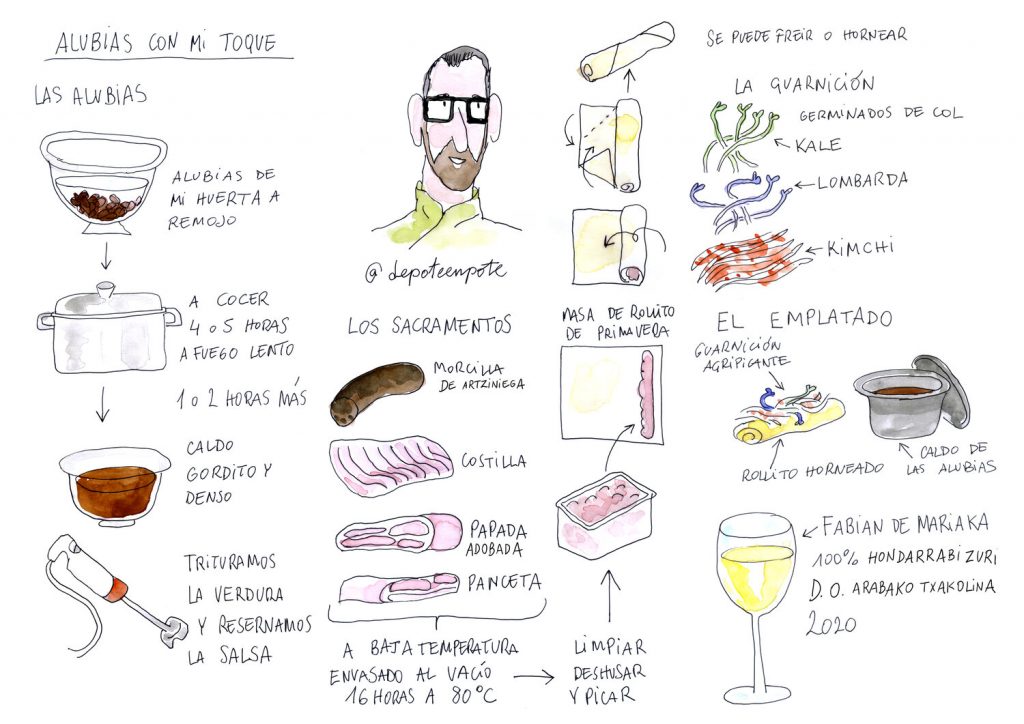 ALUBIAS CON MI TOQUE
LAS ALUBIAS
ALUBIAS DE
MI HUERTA A
REMOJO
A COCER
4 o 5 HORAS
A FUEGO LENTO
1 o 2 HORAS MÁS
CALDO
GORDITO Y
DENSO
TRITURAMOS
LA VERDURA
Y RESERNAMOS
LA SALSA
@depoteenpote
LOS SACRAMENTOS
MORCILLA
DE ARTZINIEGA
COSTILLA
PAPADA
ADOBADA
PANCETA
A BAJA TEMPERATURA
ENVASADO AL VACÍO
16 HORAS A 80ºC
LIMPIAR
DESHUSAR
Y PICAR
MASA DE ROLLITO
DE PRIMAVERA
SE PUEDE FREIR O HORNEAR
LA GUARNICIÓN
GERMINADOS DE COL
KALE
LOMBARDA
KIMCHI
EL EMPLATADO
GUARNICIÓN
AGRIPICANTE
ROLLITO HORNEADO
CALDO DE
LAS ALUBIAS
FABIAN DE MARIAKA
100% HONDARRABI ZURI
D.O. ARABAKO TXAKOLINA
2020